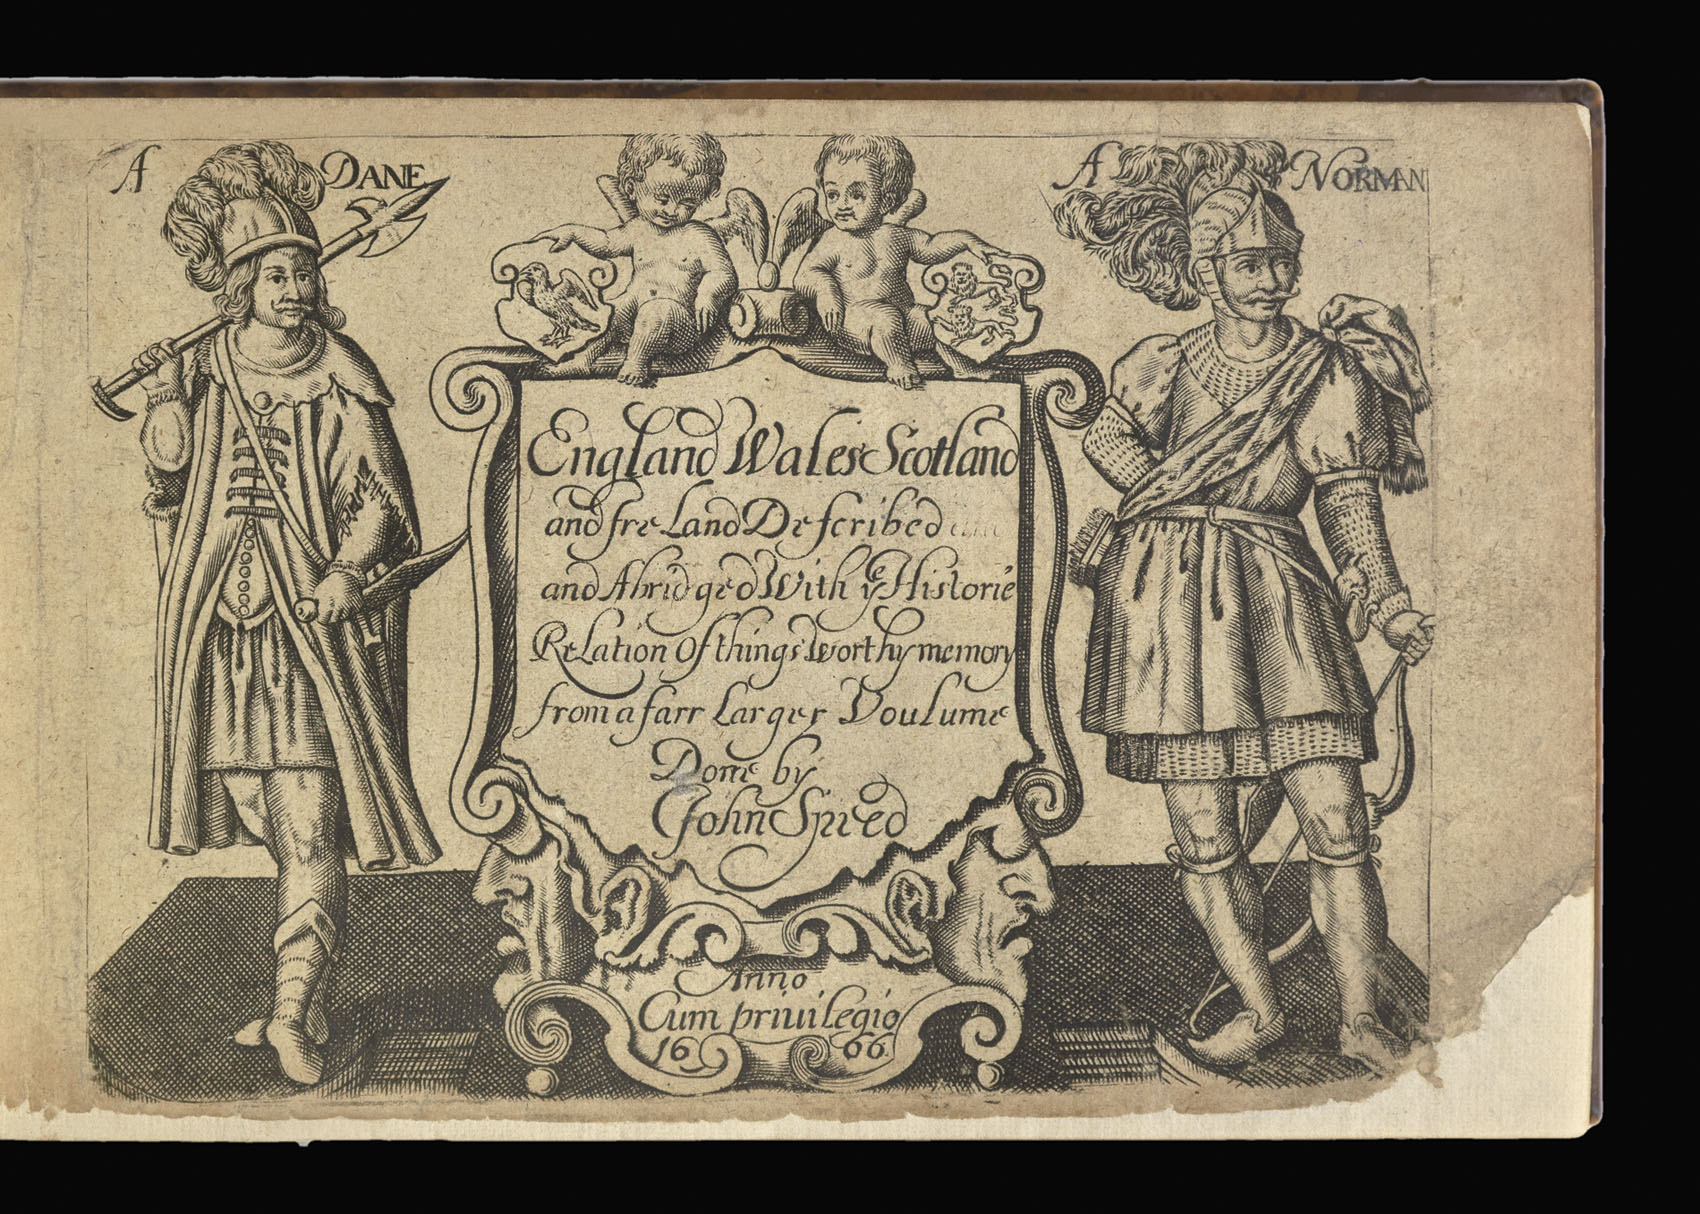 A DANE
A NORMAN
England Wales Scotland
and Ireland Described
and Abridged With ye Historie
Relation Of things Worthy memory
from a farr Larger Voulume
Done by
John Speed
Anno
Cum priuilegio
1666